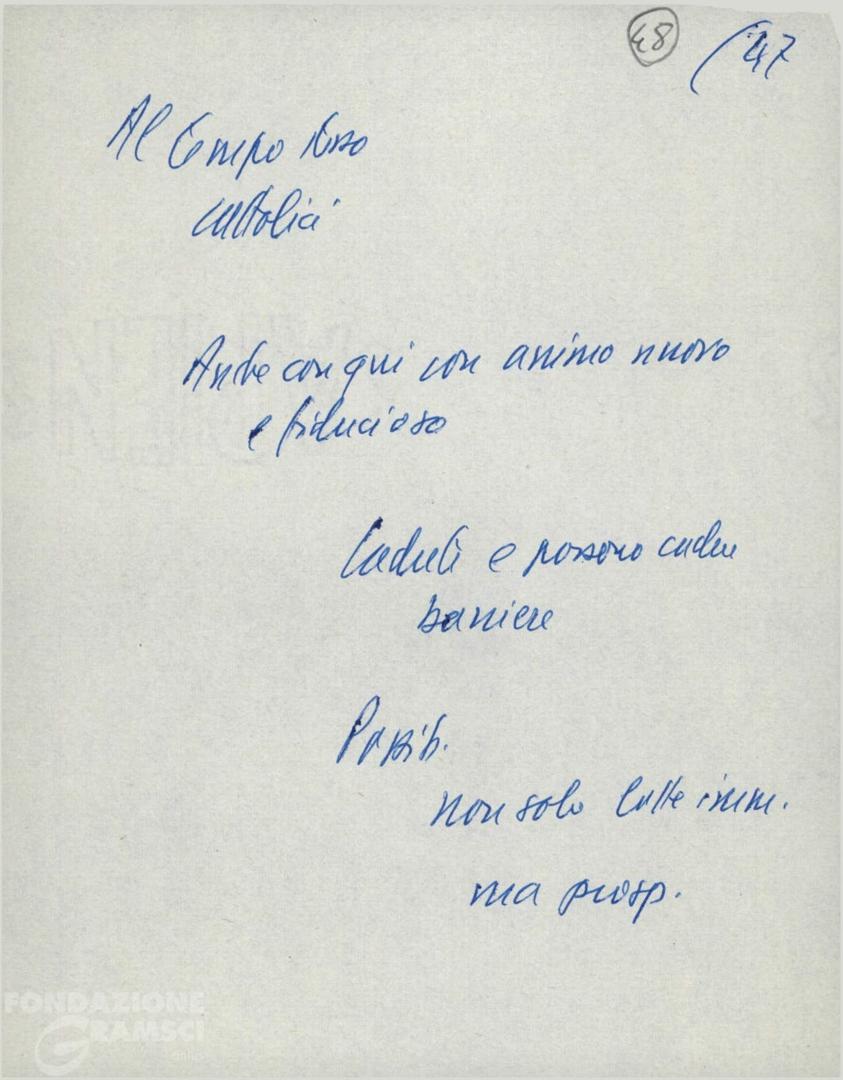 48 (47
Al tempo stesso
cattolici
Anche con qui con animo nuovo
e fiducioso
Caduti e possono cadere
barriere
Possib.
non solo lotte imm.
ma prosp.
FONDAZIONE
GRAMSCI